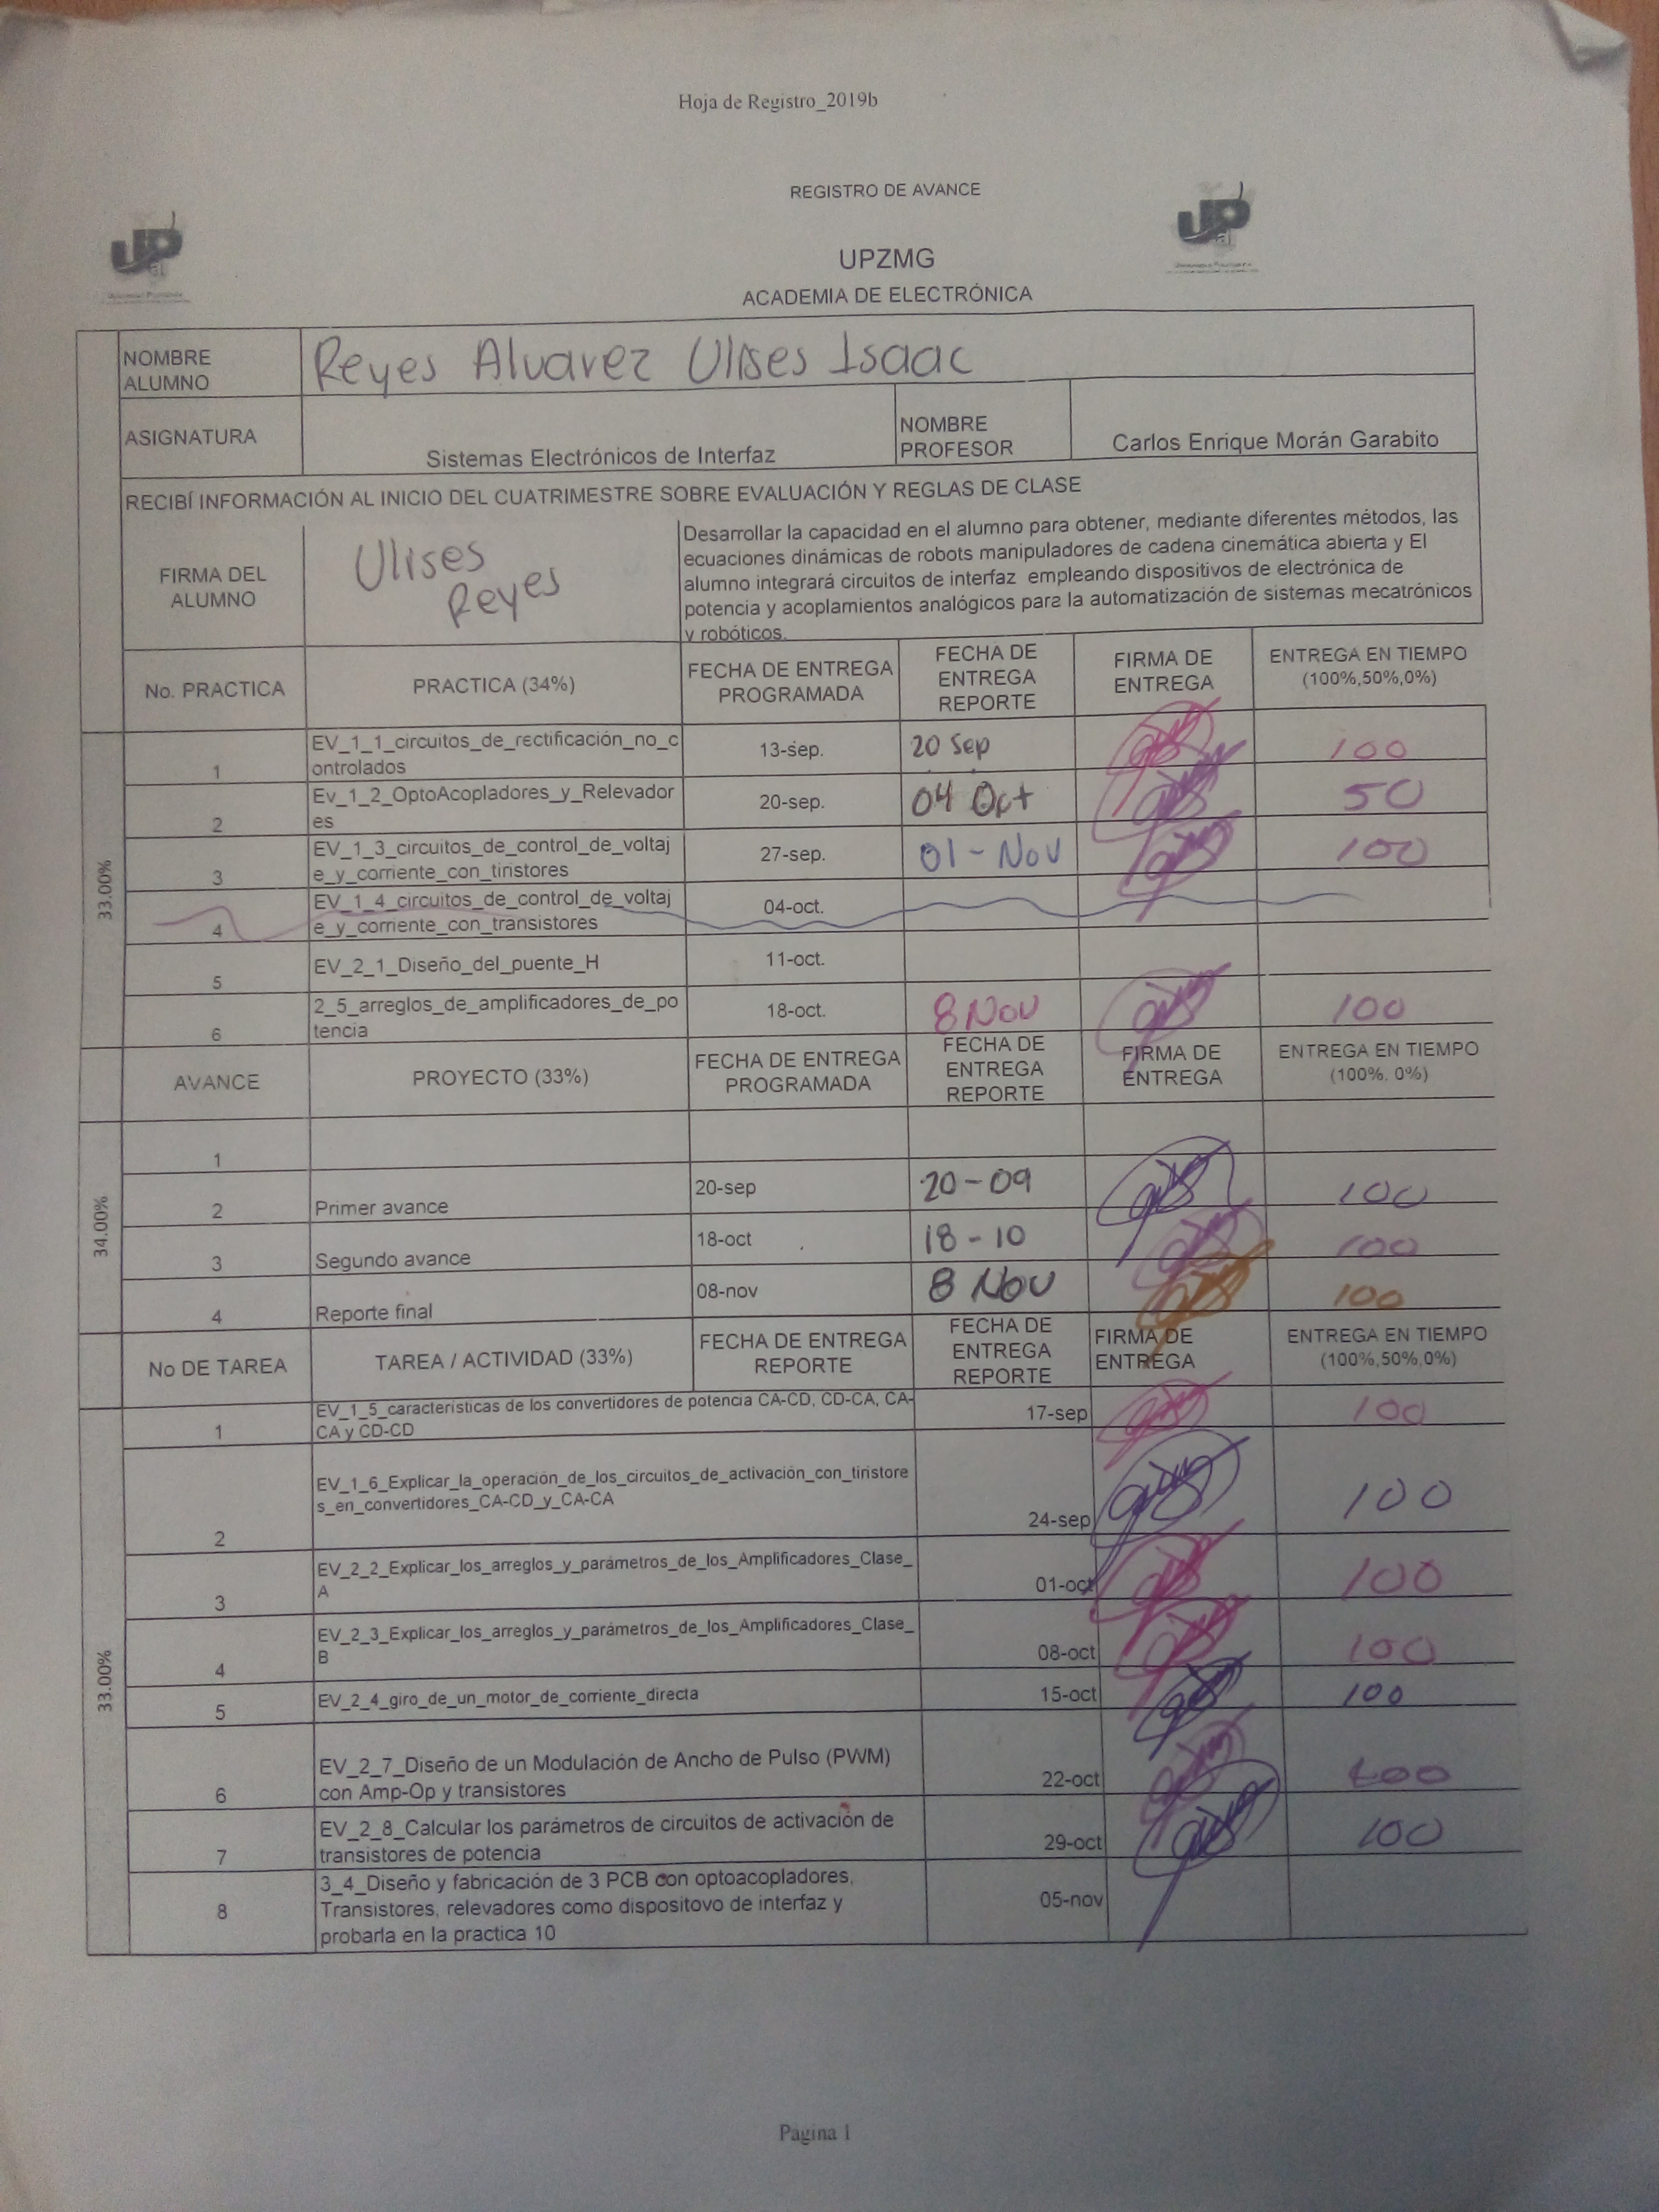 Hoja de Registro_2019b
REGISTRO DE AVANCE
UPZMG
ACADEMIA DE ELECTRÓNICA
NOMBRE
ALUMNO
Reyes Alvarez Ulises Isaac
ASIGNATURA
Sistemas Electrónicos de Interfaz
NOMBRE
PROFESOR
Carlos Enrique Morán Garabito
RECIBÍ INFORMACIÓN AL INICIO DEL CUATRIMESTRE SOBRE EVALUACIÓN Y REGLAS DE CLASE
FIRMA DEL
ALUMNO
Ulises
Reyes
Desarrollar la capacidad en el alumno para obtener, mediante diferentes métodos, las
ecuaciones dinámicas de robots manipuladores de cadena cinemática abierta y El
alumno integrará circuitos de interfaz empleando dispositivos de electrónica de
potencia y acoplamientos analógicos para la automatización de sistemas mecatrónicos
y robóticos.
No. PRACTICA
PRACTICA (34%)
FECHA DE ENTREGA
PROGRAMADA
FECHA DE
ENTREGA
REPORTE
FIRMA DE
ENTREGA
ENTREGA EN TIEMPO
(100%,50%,0%)
33.00%
1
EV_1_1_circuitos_de_rectificación_no_c
ontrolados
13-sep.
20 Sep
100
2
Ev_1_2_OptoAcopladores_y_Relevador
es
20-sep.
04 Oct
50
3
EV_1_3_circuitos_de_control_de_voltaj
e_y_corriente_con_tiristores
27-sep.
01-Nov
100
4
EV_1_4_circuitos_de_control_de_voltaj
e_y_corriente_con_transistores
04-oct.
5
EV_2_1_Diseño_del_puente_H
11-oct.
6
2_5_arreglos_de_amplificadores_de_po
tencia
18-oct.
8 Nov
100
AVANCE
PROYECTO (33%)
FECHA DE ENTREGA
PROGRAMADA
FECHA DE
ENTREGA
REPORTE
FIRMA DE
ENTREGA
ENTREGA EN TIEMPO
(100%, 0%)
34.00%
1
2
Primer avance
20-sep
20-09
100
3
Segundo avance
18-oct
18-10
100
4
Reporte final
08-nov
8 Nov
100
No DE TAREA
TAREA / ACTIVIDAD (33%)
FECHA DE ENTREGA
REPORTE
FECHA DE
ENTREGA
REPORTE
FIRMA DE
ENTREGA
ENTREGA EN TIEMPO
(100%,50%,0%)
33.00%
1
EV_1_5_características de los convertidores de potencia CA-CD, CD-CA, CA-
CA y CD-CD
17-sep
100
2
EV_1_6_Explicar_la_operación_de_los_circuitos_de_activación_con_tiristore
s_en_convertidores_CA-CD_y_CA-CA
24-sep
100
3
EV_2_2_Explicar_los_arreglos_y_parámetros_de_los_Amplificadores_Clase_
A
01-oct
100
4
EV_2_3_Explicar_los_arreglos_y_parámetros_de_los_Amplificadores_Clase_
B
08-oct
100
5
EV_2_4_giro_de_un_motor_de_corriente_directa
15-oct
100
6
EV_2_7_Diseño de un Modulación de Ancho de Pulso (PWM)
con Amp-Op y transistores
22-oct
100
7
EV_2_8_Calcular los parámetros de circuitos de activación de
transistores de potencia
29-oct
100
8
3_4_Diseño y fabricación de 3 PCB con optoacopladores,
Transistores, relevadores como dispositovo de interfaz y
probarla en la practica 10
05-nov
Pagina 1